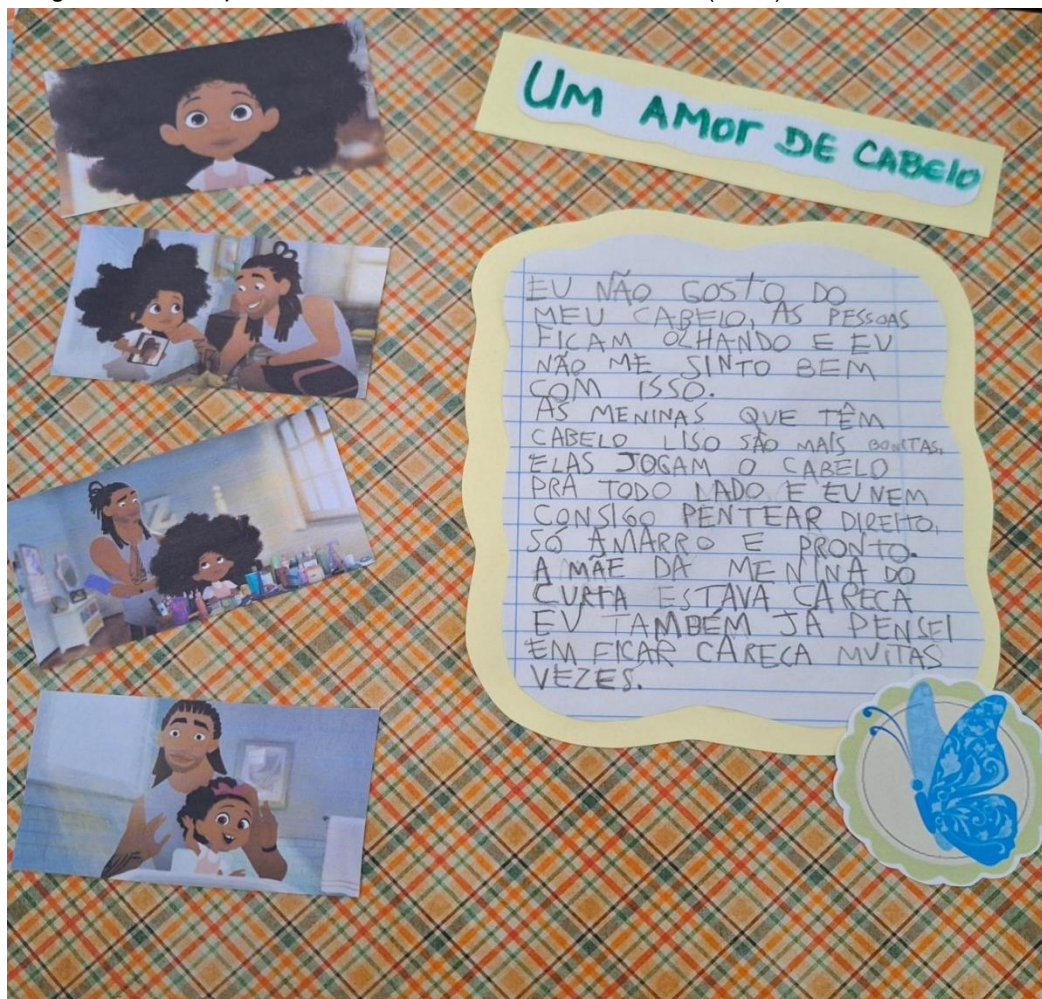 UM AMOR DE CABELO
EU NÃO GOSTO DO
MEU CABELO, AS PESSOAS
FICAM OLHANDO E EU
NÃO ME SINTO BEM
COM ISSO.
AS MENINAS QUE TÊM
CABELO LISO SÃO MAIS BONITAS,
ELAS JOGAM O CABELO
PRA TODO LADO E EU NEM
CONSIGO PENTEAR DIREITO,
SÓ AMARRO E PRONTO.
A MÃE DA MENINA DO
CURTA ESTAVA CARECA
EU TAMBÉM JÁ PENSEI
EM FICAR CARECA MUITAS
VEZES.